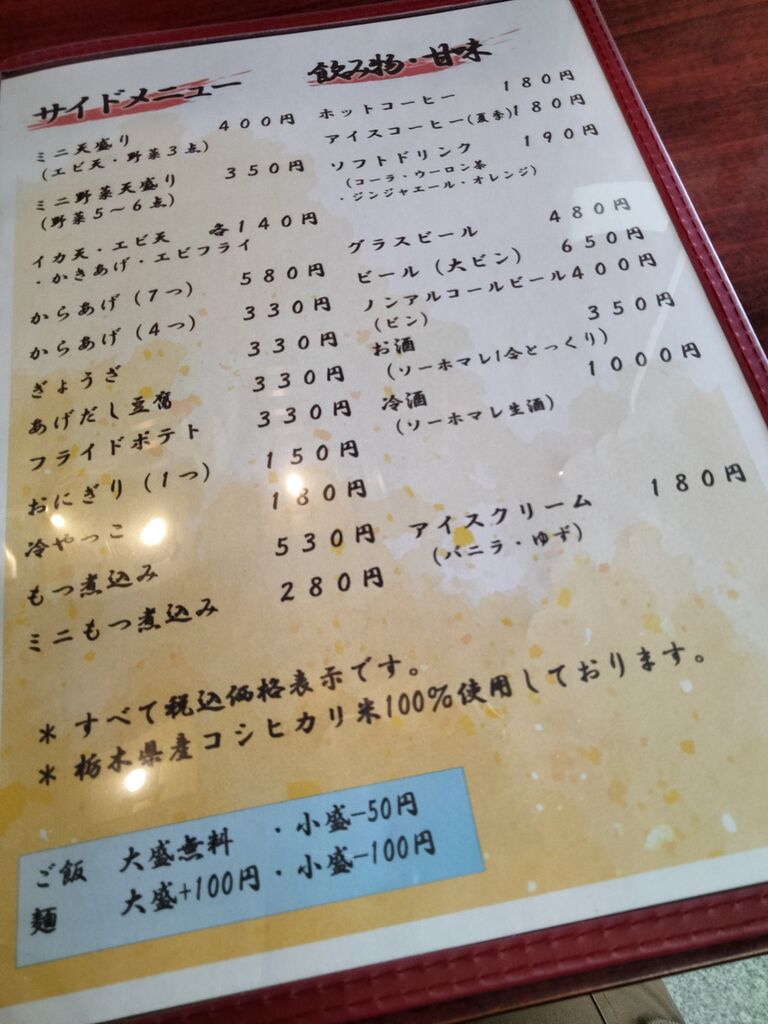 サイドメニュー
ミニ天盛り 400円
(エビ天・野菜3点)
ミニ野菜天盛り 350円
(野菜5～6点)
イカ天・エビ天 各140円
・かきあげ・エビフライ
からあげ(7つ) 580円
からあげ(4つ) 330円
ぎょうざ 330円
あげだし豆腐 330円
フライドポテト 330円
おにぎり(1つ) 150円
冷やっこ 180円
もつ煮込み 530円
ミニもつ煮込み 280円
飲み物・甘味
ホットコーヒー 180円
アイスコーヒー(夏季) 180円
ソフトドリンク 190円
(コーラ・ウーロン茶
・ジンジャエール・オレンジ)
グラスビール 480円
ビール(大ビン) 650円
ノンアルコールビール 400円
(ビン)
お酒 350円
(ソーホマレ1合とっくり)
冷酒 1000円
(ソーホマレ生酒)
アイスクリーム 180円
(バニラ・ゆず)
* すべて税込価格表示です。
* 栃木県産コシヒカリ米100%使用しております。
ご飯 大盛無料 ・小盛-50円
麺 大盛+100円・小盛-100円